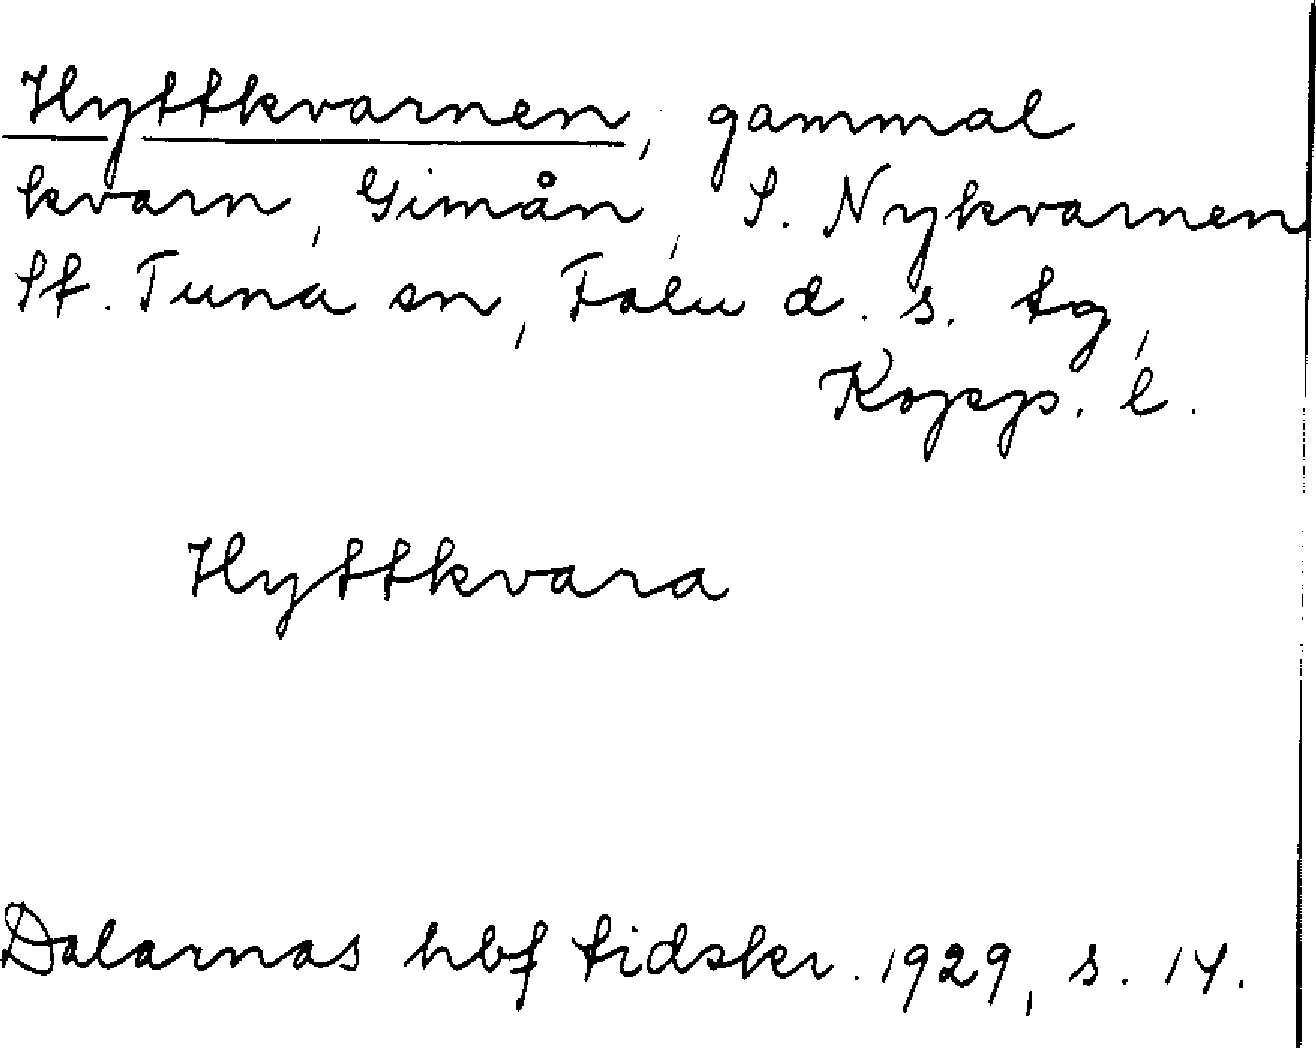 Hyttkvarnen, gammal
kvarn, Gimån, S. Nykvarnen
St. Tuna sn, Falu d. s. tg,
Kopp. l.
Hyttkvara
Dalarnas hbf tidskr. 1929, s. 14.